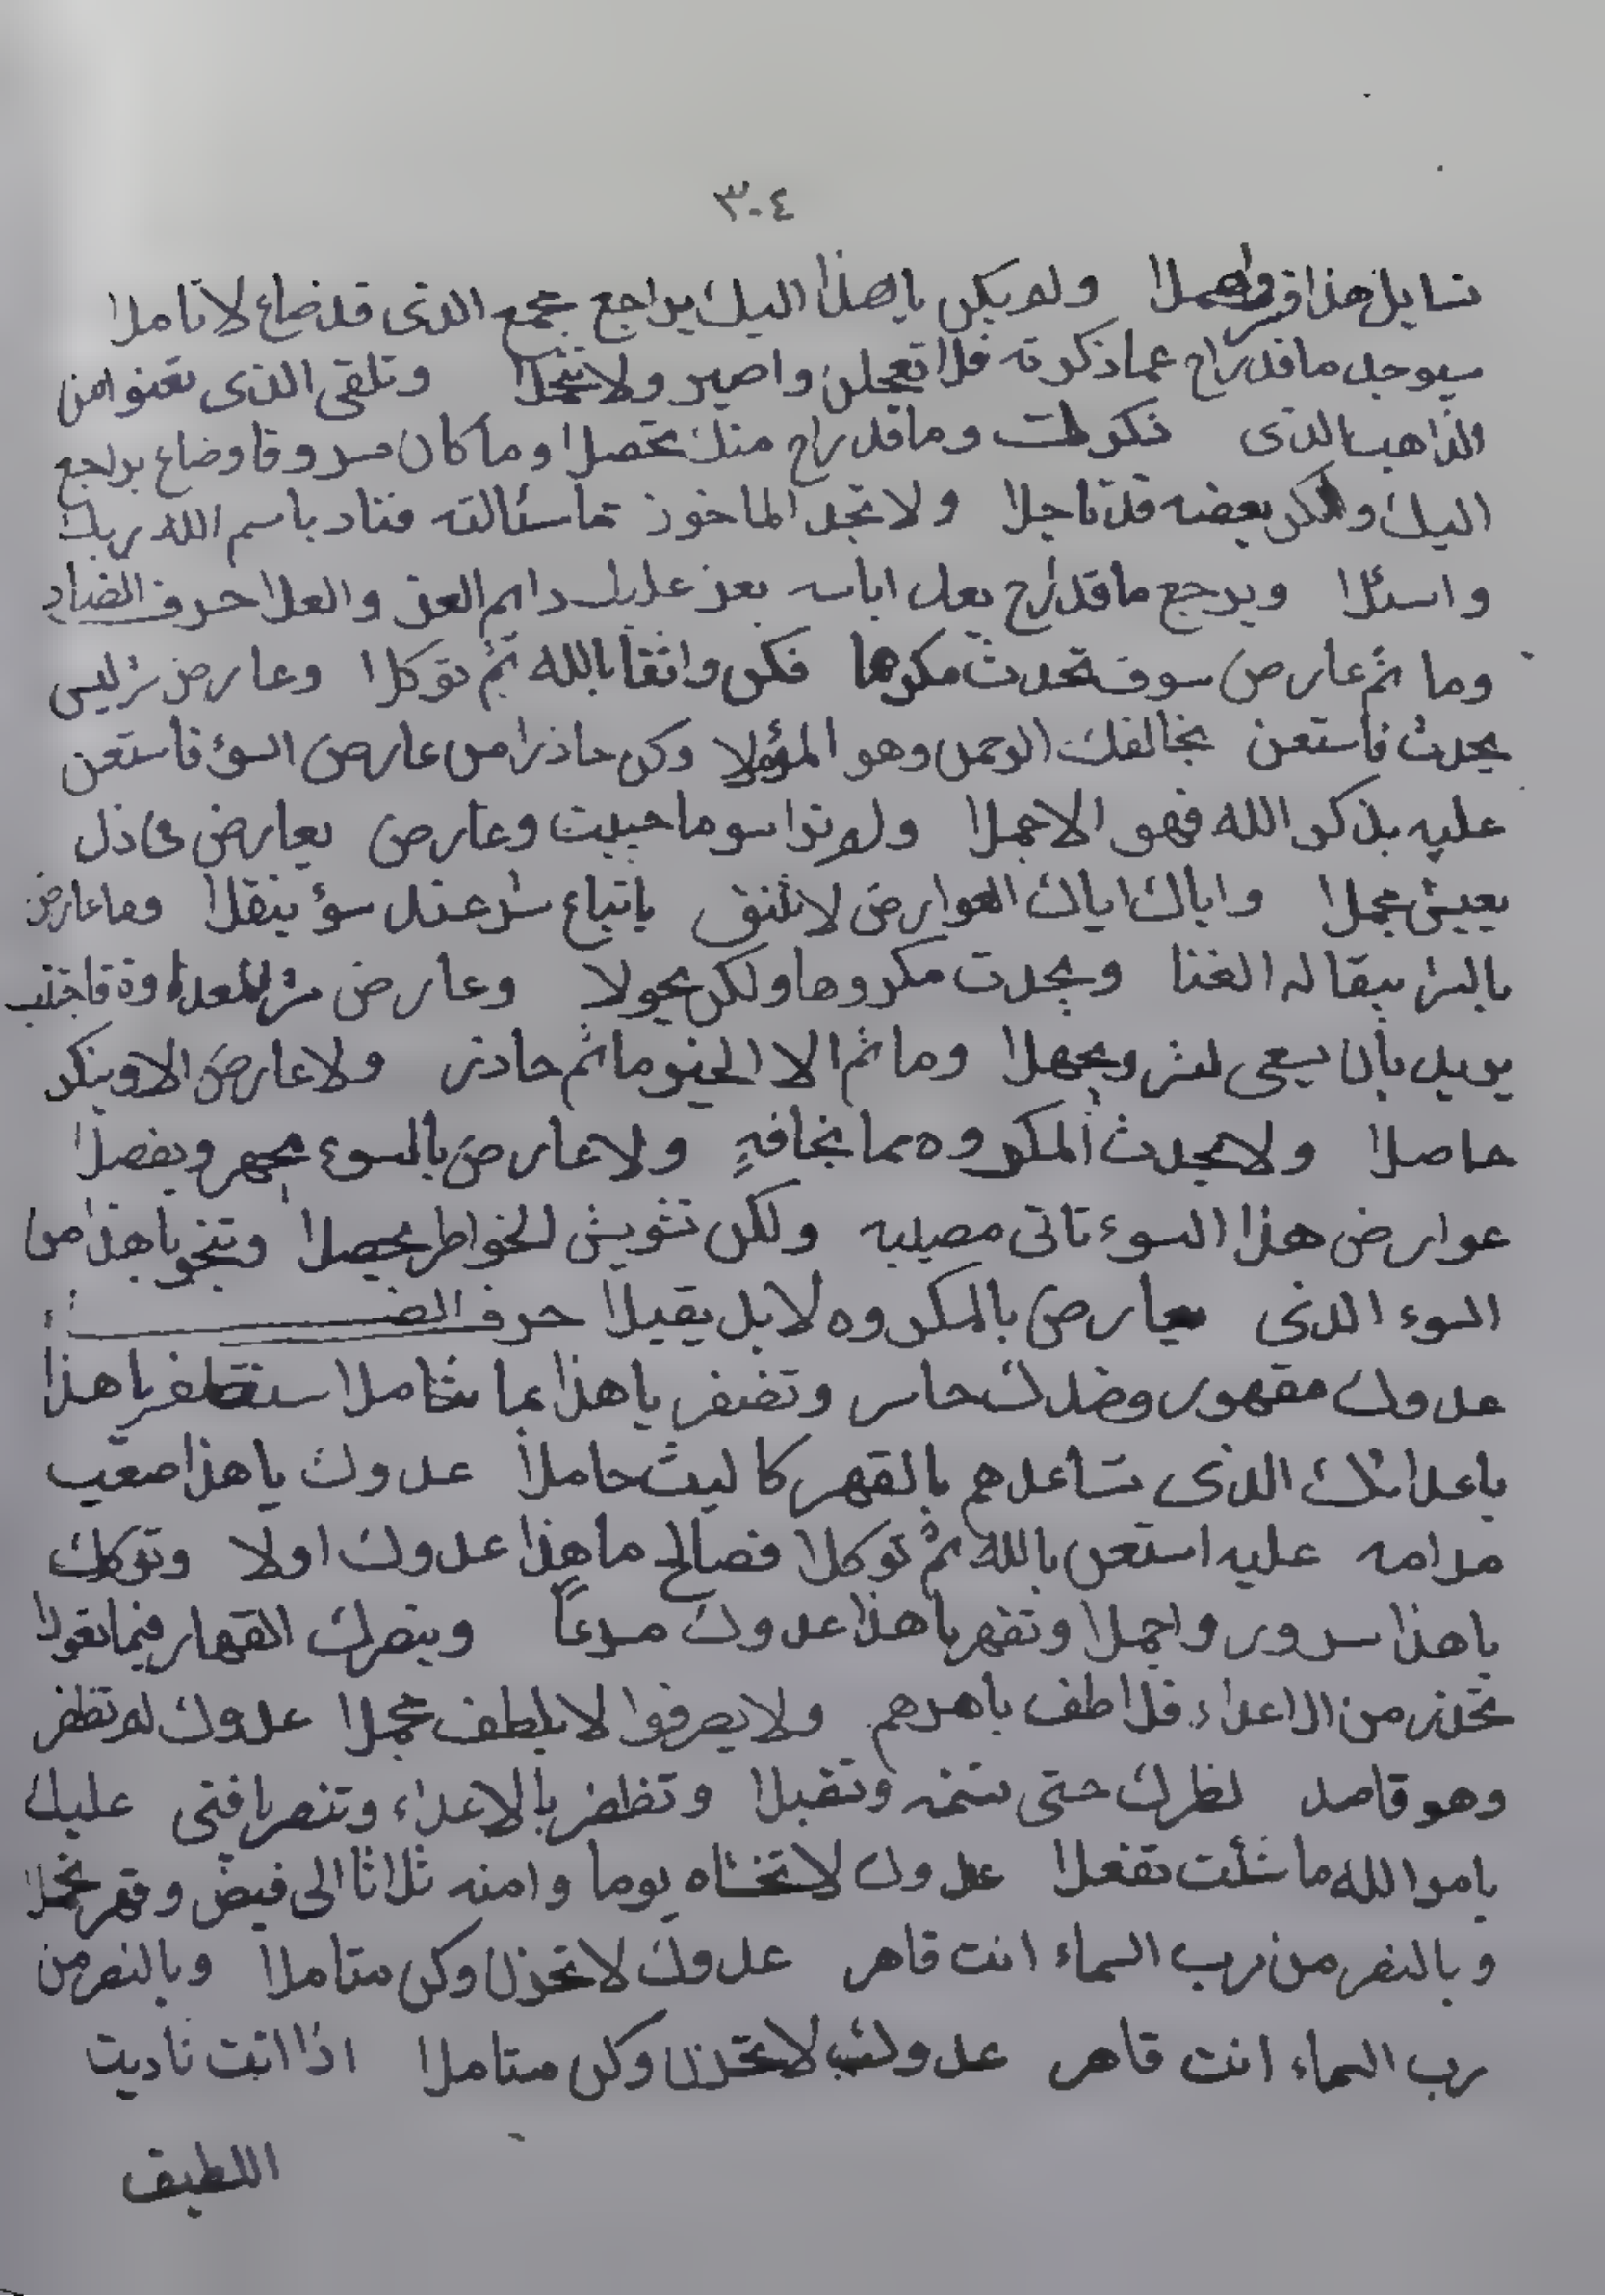 ٣٠٤
تسايل هذا ولم يكن يا هذا اليك يراجع بجمع الذى قد ضاع لا تاملا
سيوجد ما قد راح عما ذكرته فلا تعجلن واصبر ولا وتلقى الذى
الذاهب الذى ذكرت وما قد راح منك تحصلا وما كان مسروقا وضاع يراجع
اليك ولكن بعضه قد تاجلا ولا تجد الماخوذ عما سئالته فناد باسم الله ربك
واسئلا ويرجع ما قد راح بعد اياسه بعز عليك دايم العز والعلا حرف الضاد
وما ثم عارض سوف تحدث مكرها فكن واثقا بالله ثم توكلا وعارض شر ليس
يحدث فاستعن بخالفك الرحمن وهو المؤملا وكن حاذرا من عارض السؤ فاستعن
عليه بذكر الله فهو الاجملا ولم ترا سو ما حييت وعارض يعارض فى ذل
يعيش مجملا واياك اياك العوارض لا تثق باتباع شر عند سؤ ينقلا وما عارض
بالشر يبقا له الغنا ويحدث مكروها ولكن يحولا وعارض شر
يريد بأن يسعى لشر ويجهلا وما ثم الا الخير وما ثم حاذر ولا عارض الا وينكر
حاصلا ولا يحدث المكروه مما تخافه ولا عارض بالسوء يجهر ويفصلا
عوارض هذا السوء تاتى مصيبه ولكن تشويش الخواطر يحصلا وتنجو يا هذا من
السوء الذى يعارض بالمكروه لا بل يقيلا حرف
عدوك مقهور وضدك خاسر وتضفر يا هذا بما ستظفر يا هذا
باعدائك الذى تساعدهم بالقهر كا ليث حاملا عدوك يا هذا صعيب
مرامه عليه استعن بالله ثم توكلا فصالح ما هذا عدوك اولا وتوكك
يا هذا سرور واجملا وتقهر يا هذا عدوك مسرعاً وينصرك القهار فيما تقولا
تحذر من الاعداء فلاطف باهرهم ولا يصرفوا لا بلطف مجملا عدوك لم تظفر
وهو قاصد لظرك حتى وتقبلا وتظفر بالاعداء وتنصر يا فتى عليك
بامر الله ما شئت تفعلا عدوك لا تخشاه يوما وامنه ثلاثا الى فيض وقهر
وبالنصر من رب السماء انت قاهر عدوك لا تحزن وكن متاملا وبالنصر من
رب السماء انت قاهر عدوك لا تحزن وكن متاملا اذا انت ناديت
اللطيف